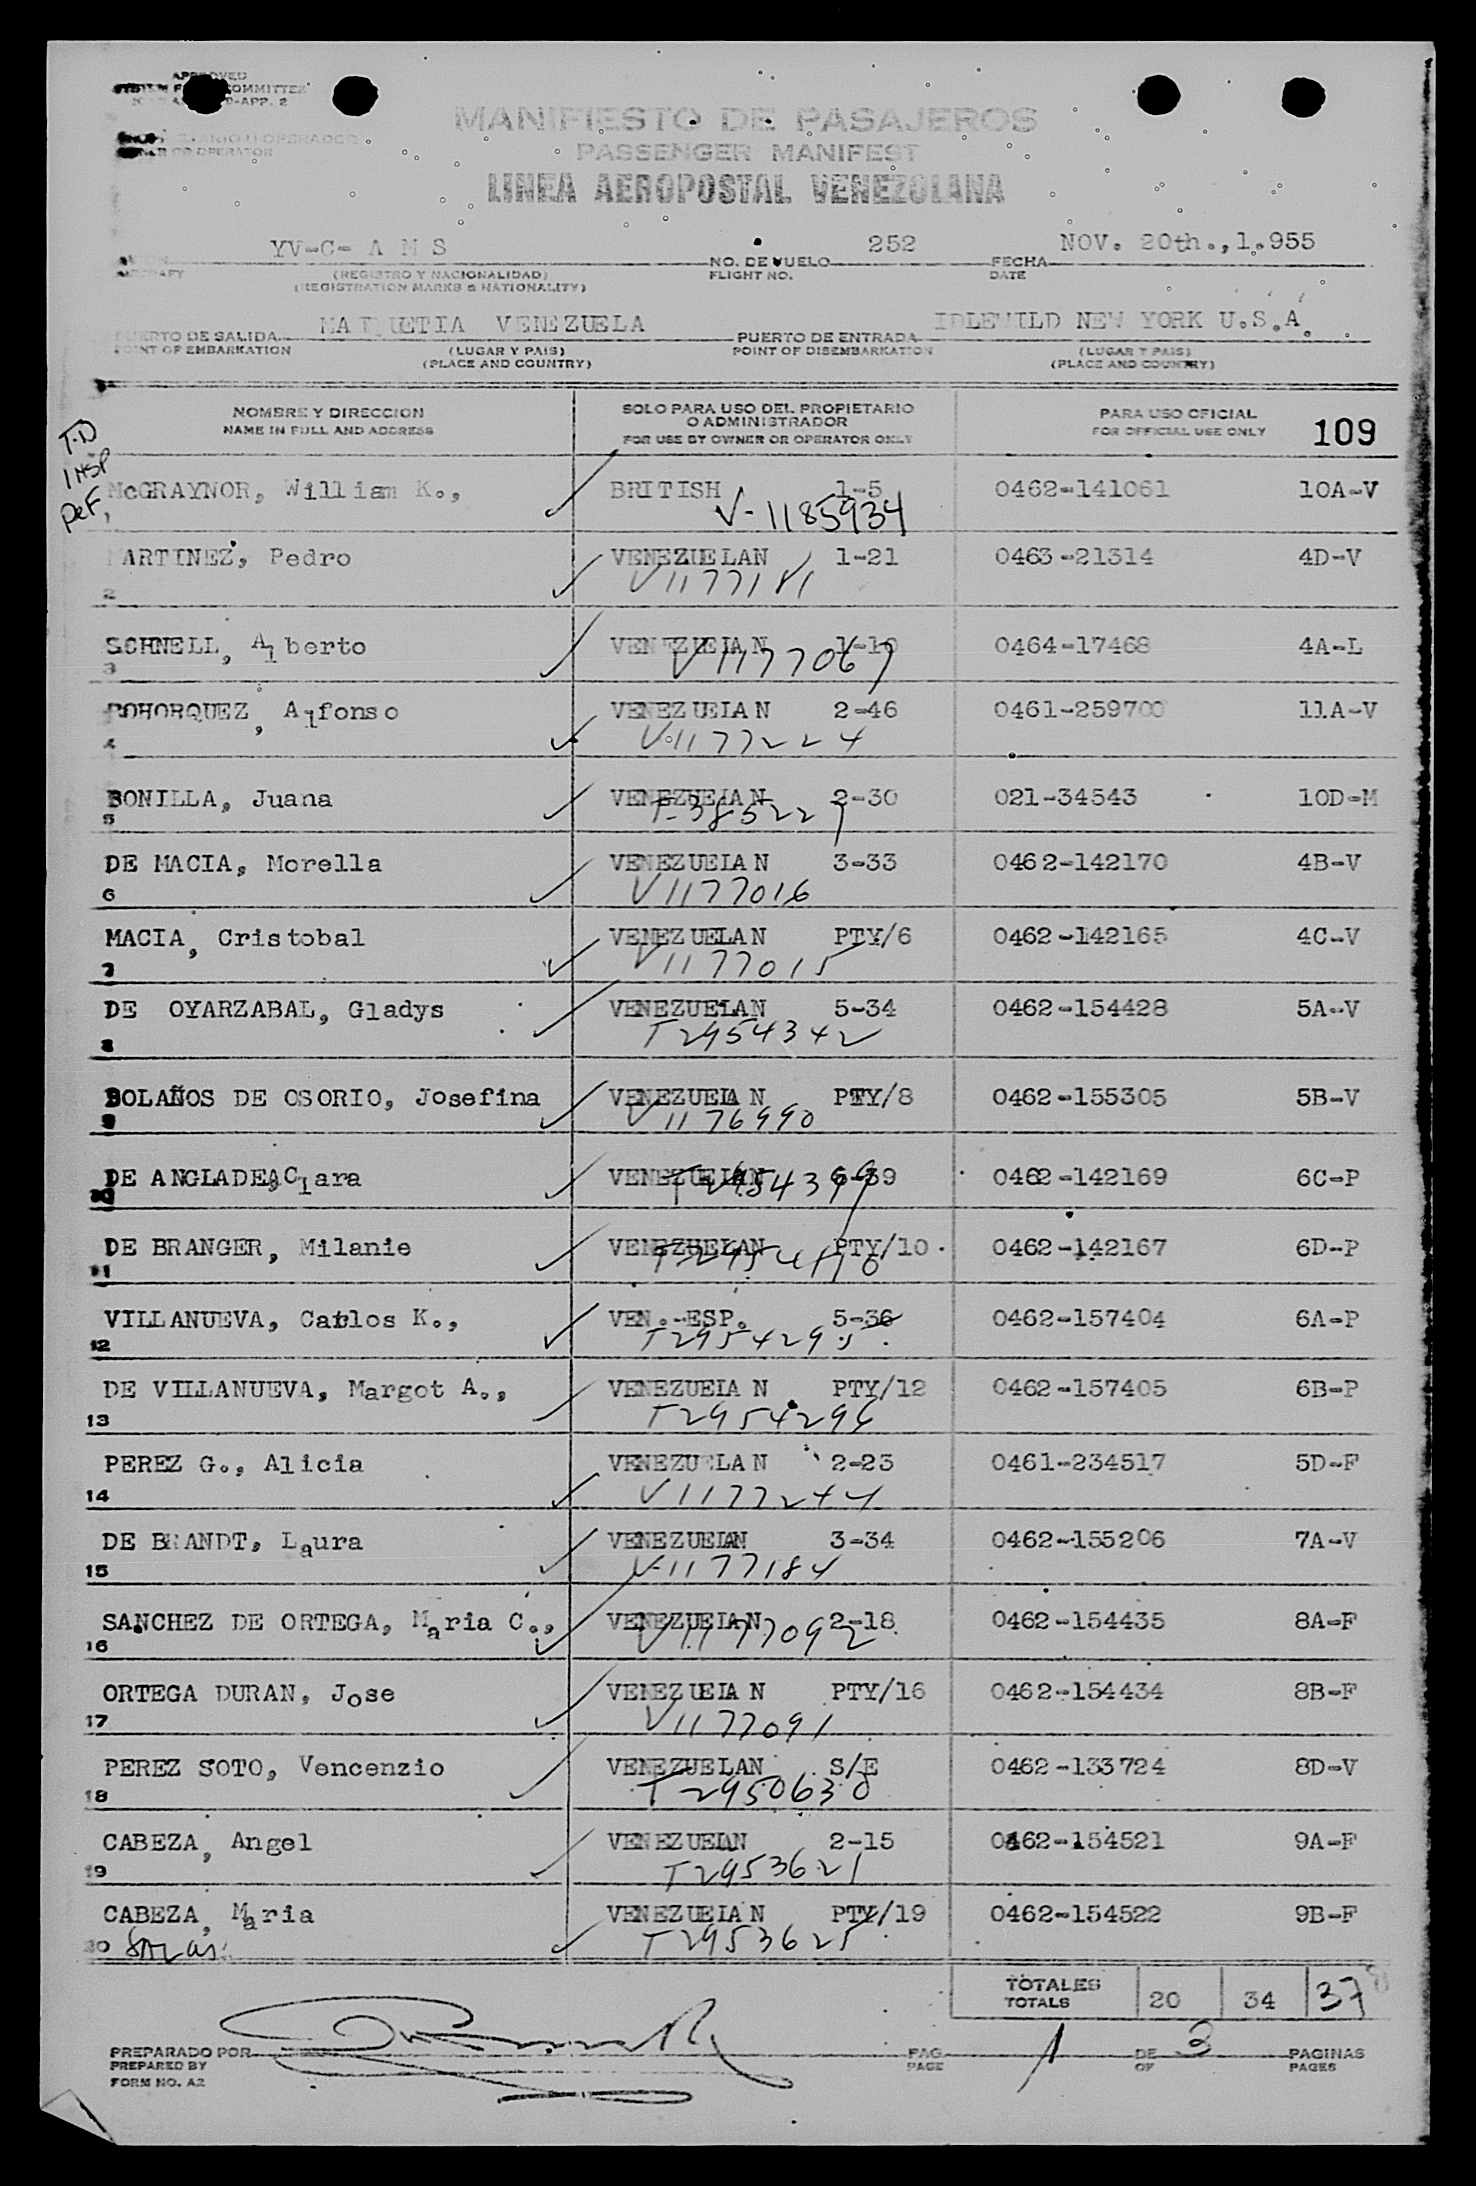 APPROVED
MANIFIESTO DE PASAJEROS
PASSENGER MANIFEST
LINEA AEROPOSTAL VENEZOLANA
OWNER OR OPERATOR
YV-C- A M S 252 NOV. 20th.,1.955
AVION NO. DE VUELO FECHA
AIRCRAFT (REGISTRO Y NACIONALIDAD) FLIGHT NO. DATE
(REGISTRATION MARKS & NATIONALITY)
MAIQUETIA VENEZUELA IDLEWILD NEW YORK U.S.A.
PUERTO DE SALIDA PUERTO DE ENTRADA
POINT OF EMBARKATION (LUGAR Y PAIS) POINT OF DISEMBARKATION (LUGAR Y PAIS)
(PLACE AND COUNTRY) (PLACE AND COUNTRY)
NOMBRE Y DIRECCION SOLO PARA USO DEL PROPIETARIO PARA USO OFICIAL
NAME IN FULL AND ADDRESS O ADMINISTRADOR FOR OFFICIAL USE ONLY 109
FOR USE BY OWNER OR OPERATOR ONLY
T.D
INSP
DeF
McGRAYNOR, William K., BRITISH 1-5 0462-141061 10A-V
1 V-1185934
MARTINEZ, Pedro VENEZUELAN 1-21 0463-21314 4D-V
2 V1177181
SCHNELL, Alberto VENEZUELAN 1-10 0464-17468 4A-L
3 V1177067
BOHORQUEZ, Alfonso VENEZUELAN 2-46 0461-259700 11A-V
4 V-1177224
BONILLA, Juana VENEZUELAN 2-30 021-34543 10D-M
5 T-385221
DE MACIA, Morella VENEZUELAN 3-33 0462-142170 4B-V
6 V1177016
MACIA, Cristobal VENEZUELAN PTY/6 0462-142165 4C-V
7 V1177015
DE OYARZABAL, Gladys VENEZUELAN 5-34 0462-154428 5A-V
8 T2954342
BOLAÑOS DE OSORIO, Josefina VENEZUELAN PTY/8 0462-155305 5B-V
9 V1176990
DE ANGLADE, Clara VENEZUELAN 6-39 0462-142169 6C-P
10 T2954399
DE BRANGER, Milanie VENEZUELAN PTY/10 0462-142167 6D-P
11
VILLANUEVA, Carlos K., VEN.-ESP. 5-36 0462-157404 6A-P
12 T2954295
DE VILLANUEVA, Margot A., VENEZUELAN PTY/12 0462-157405 6B-P
13 T2954296
PEREZ G., Alicia VENEZUELAN 2-23 0461-234517 5D-F
14 V1177244
DE BRANDT, Laura VENEZUELAN 3-34 0462-155206 7A-V
15 V-1177184
SANCHEZ DE ORTEGA, Maria C., VENEZUELAN 2-18 0462-154435 8A-F
16 V1177092
ORTEGA DURAN, Jose VENEZUELAN PTY/16 0462-154434 8B-F
17 V1177091
PEREZ SOTO, Vencenzio VENEZUELAN S/E 0462-133724 8D-V
18 T2950630
CABEZA, Angel VENEZUELAN 2-15 0462-154521 9A-F
19 T2953621
CABEZA, Maria VENEZUELAN PTY/19 0462-154522 9B-F
20 T2953625
TOTALES
TOTALS 20 34 37
PREPARADO POR PAG. 1 DE 3 PAGINAS
PREPARED BY PAGE OF PAGES
FORM NO. A2